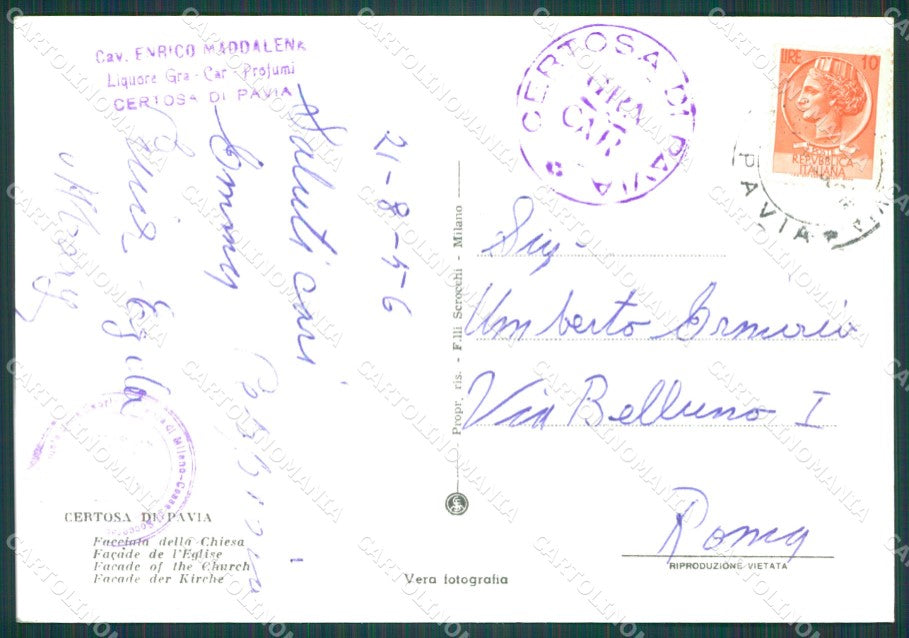 Cav. ENRICO MADDALENA
Liquore Gra-Car-Profumi
CERTOSA DI PAVIA
Saluti cari
Emmy
21-8-56
CERTOSA DI PAVIA
GRA
CAR
LIRE 10
REPUBBLICA
ITALIANA
PAVIA
Sig.
Umberto
Via Belluno I
Roma
RIPRODUZIONE VIETATA
Propr. ris. - F.lli Scrocchi - Milano
CERTOSA DI PAVIA
Facciata della Chiesa
Façade de l'Eglise
Facade of the Church
Facade der Kirche
Vera fotografia
CARTOLINOMANIA